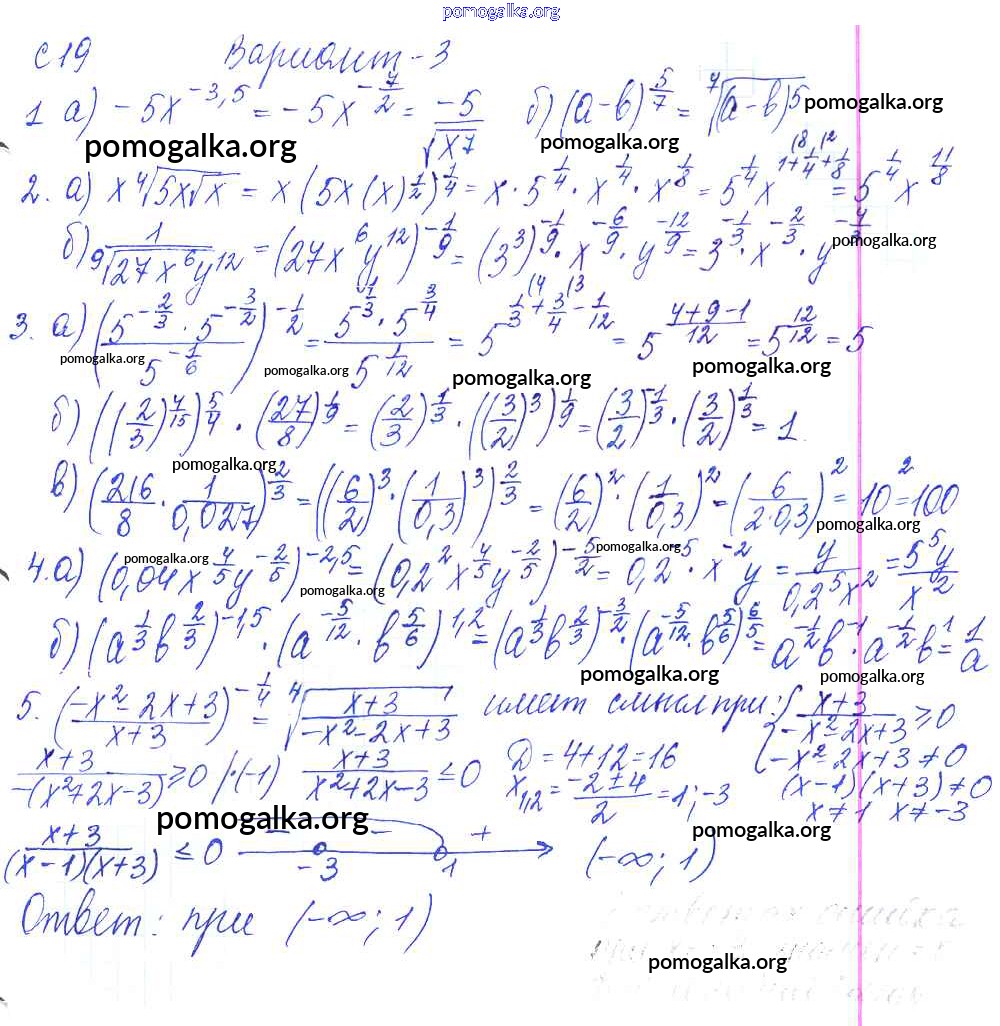 pomogalka.org
С 19 Вариант-3
1 а) -5x^{-3,5} = -5x^{-7/2} = -5/√(x7) б) (a-b)^{5/7} = ⁷√((a-b)5 pomogalka.org
pomogalka.org pomogalka.org
2. а) x ⁴√(5x√x) = x (5x(x)^{1/2})^{1/4} = x · 5^{1/4} · x^{1/4} · x^{1/8} = 5^{1/4} x^{1+1/4+1/8} = 5^{1/4} x^{11/8}
б) 1/⁹√(27x⁶y¹²) = (27x⁶y¹²)^{-1/9} = (3³)^{-1/9} · x^{-6/9} · y^{-12/9} = 3^{-1/3} · x^{-2/3} · y^{-4/3}
pomogalka.org
3. а) ((5^{-2/3} · 5^{-3/2})/5^{-1/6})^{-1/2} = (5^{1/3} · 5^{3/4})/5^{1/12} = 5^{1/3+3/4-1/12} = 5^{(4+9-1)/12} = 5^{12/12} = 5
pomogalka.org pomogalka.org pomogalka.org pomogalka.org
б) (((2/3)^{4/15})^{5/4} · (27/8)^{1/9} = (2/3)^{1/3} · ((3/2)³)^{1/9} = (3/2)^{-1/3} · (3/2)^{1/3} = 1.
pomogalka.org
в) (216/8 · 1/0,027)^{2/3} = ((6/2)³ · (1/0,3)³)^{2/3} = (6/2)² · (1/0,3)² = (6/(2·0,3))² = 10² = 100
pomogalka.org
4. а) (0,04x^{4/5}y^{-2/5})^{-2,5} = (0,2²x^{4/5}y^{-2/5})^{-5/2} = 0,2^{-5} · x^{-2} y = y/(0,2⁵x²) = 5⁵y/x²
pomogalka.org pomogalka.org pomogalka.org
б) (a^{1/3}b^{2/3})^{-1,5} · (a^{-5/12} · b^{5/6})^{1,2} = (a^{1/3}b^{2/3})^{-3/2} · (a^{-5/12} · b^{5/6})^{6/5} = a^{-1/2}b^{-1} · a^{-1/2}b^{1} = 1/a
pomogalka.org pomogalka.org
5. ((-x²-2x+3)/(x+3))^{-1/4} = ⁴√((x+3)/(-x²-2x+3)) имеет смысл при: { (x+3)/(-x²-2x+3) ≥ 0
pomogalka.org
-x²-2x+3 ≠ 0
(x+3)/(-(x²+2x-3)) ≥ 0 |·(-1) (x+3)/(x²+2x-3) ≤ 0 D = 4+12 = 16
x_{1,2} = (-2±4)/2 = 1; -3 (x-1)(x+3) ≠ 0
x ≠ 1 x ≠ -3
pomogalka.org pomogalka.org
(x+3)/((x-1)(x+3)) ≤ 0 - - + -3 1 (-∞; 1)
Ответ: при (-∞; 1)
pomogalka.org